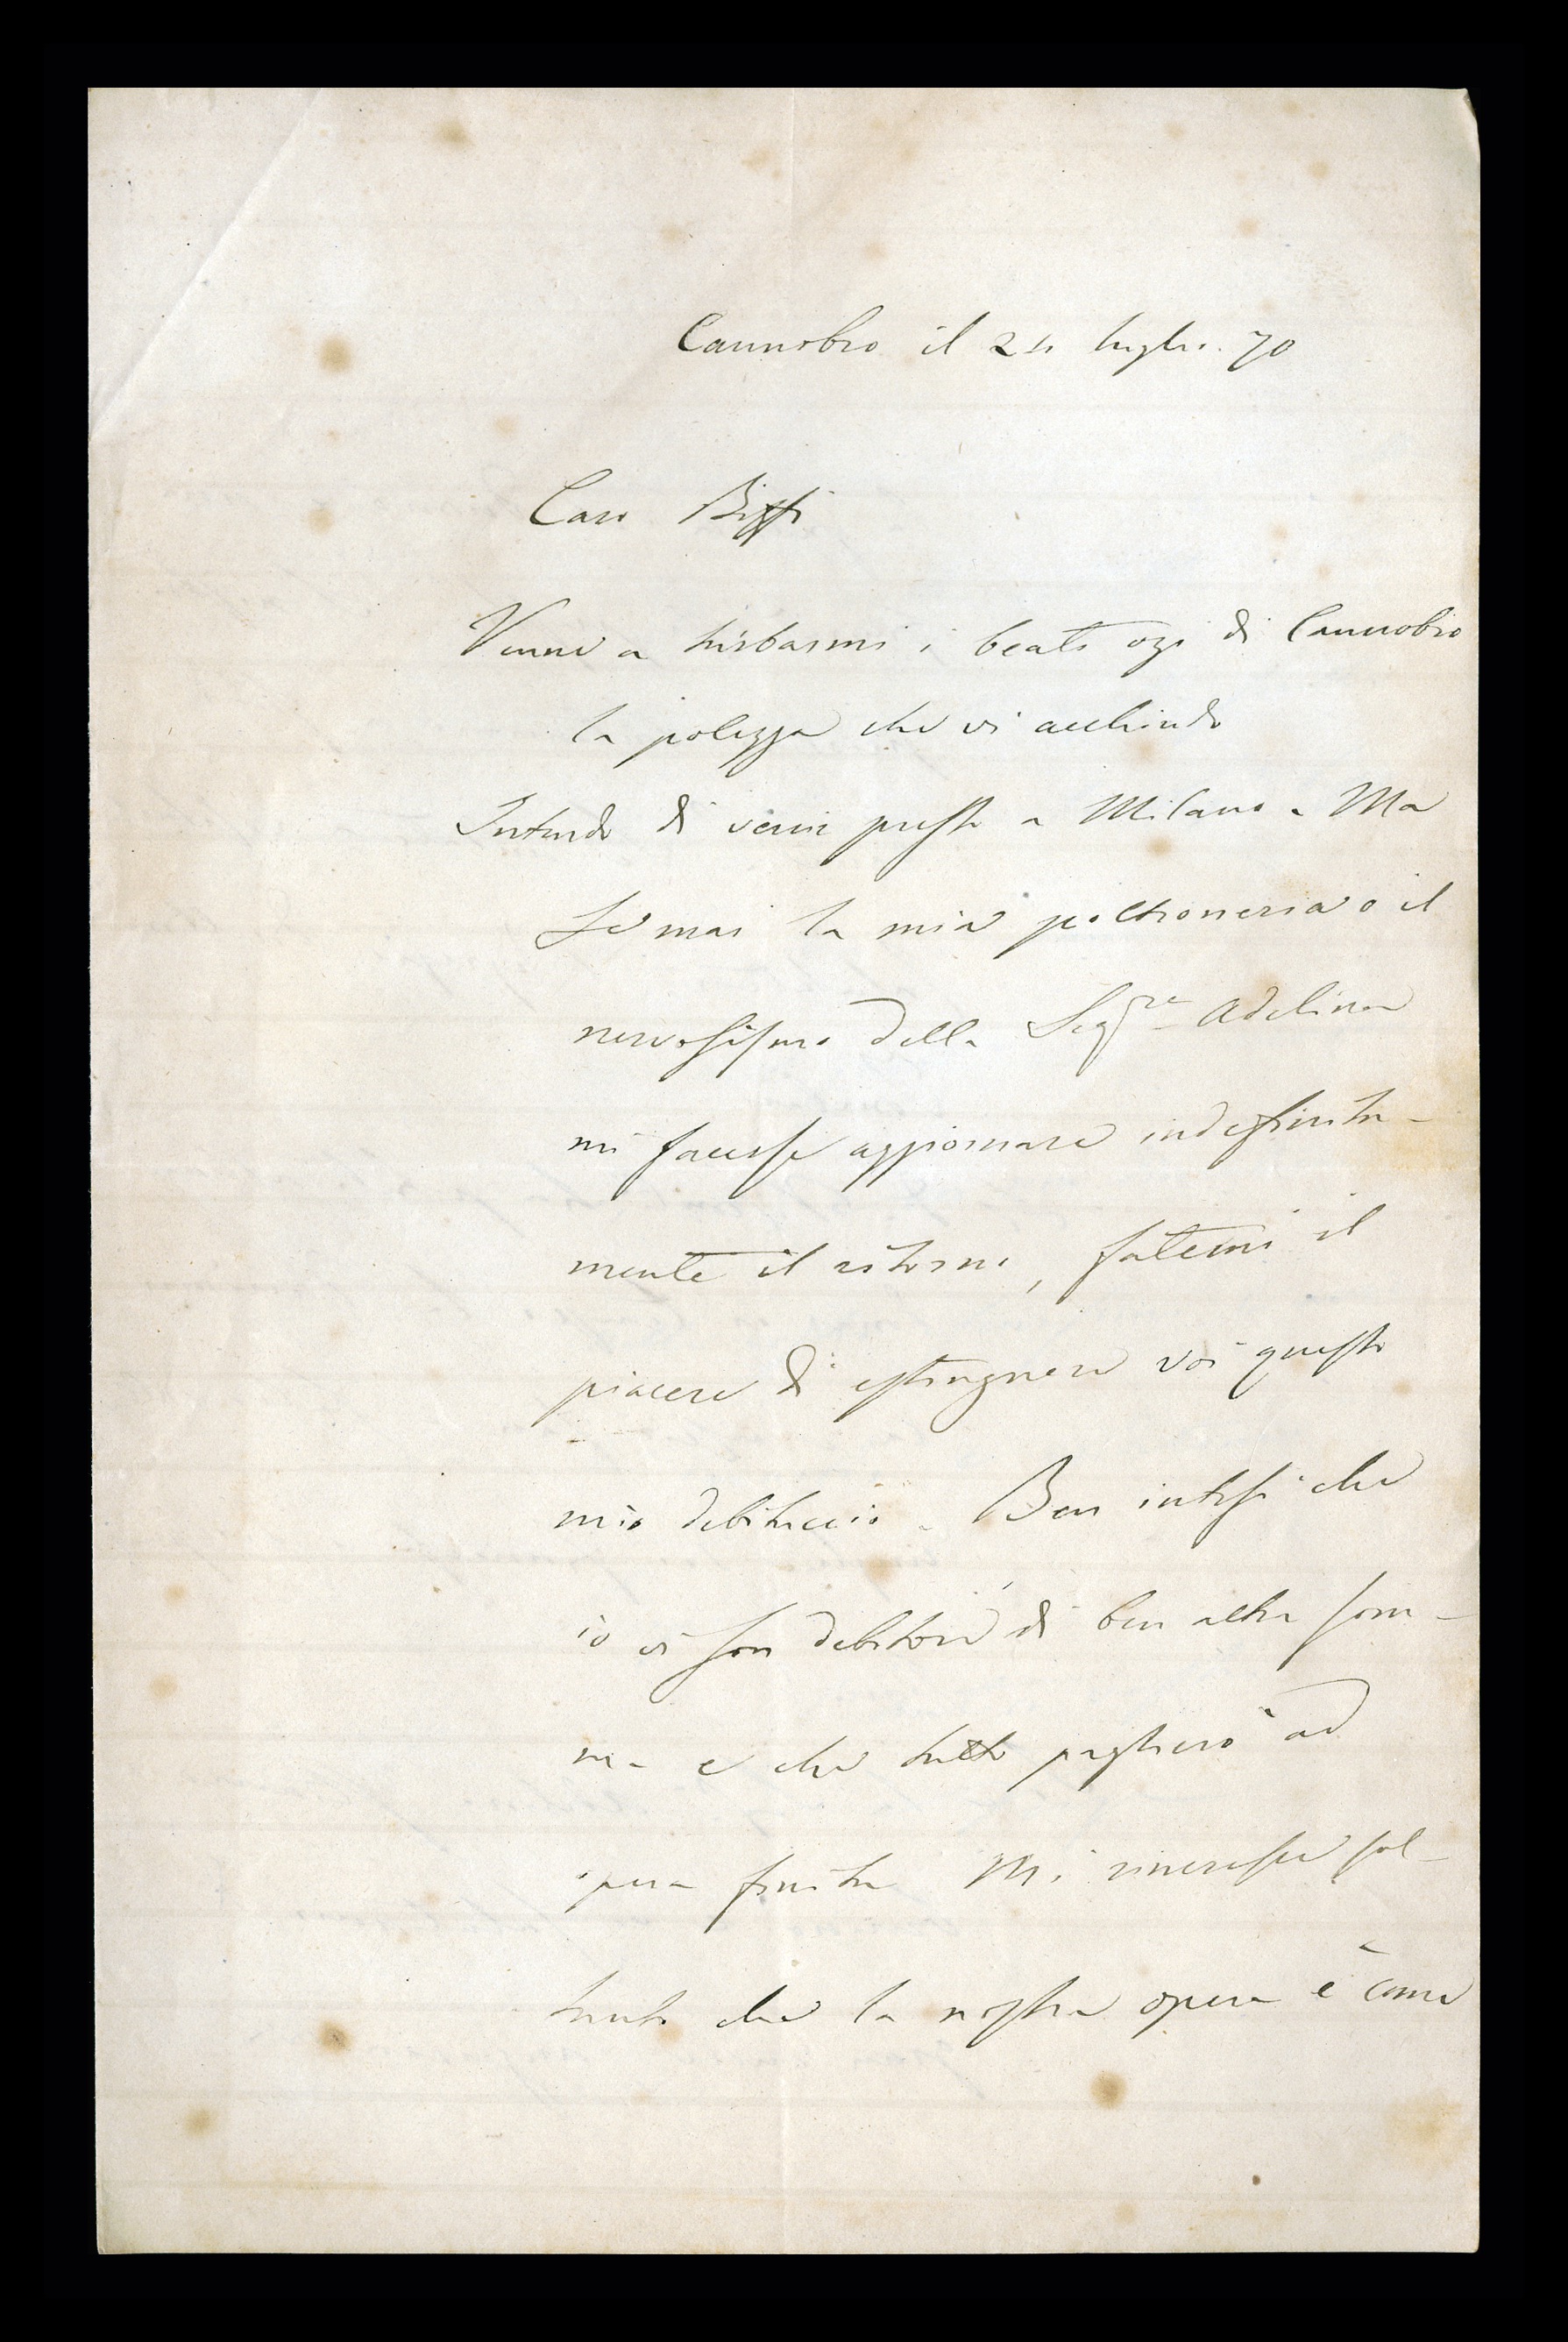 Cannobio il 24 luglio 70
Caro Biffi
Venne a turbarmi i beati ozi di Cannobio
la polizza che vi acchiudo
Intendo di venir presto a Milano - Ma
se mai la mia poltroneria o il
nervosismo della Sigra Adelina
mi facesse aggiornare indefinita-
mente il ritorno, fatemi il
piacere di estinguere voi questo
mio debituccio - Ben inteso che
io vi son debitore di ben altra som-
ma - e che tutto pagherò ad
opera finita Mi rincresce sol-
tanto che la nostra opera è come